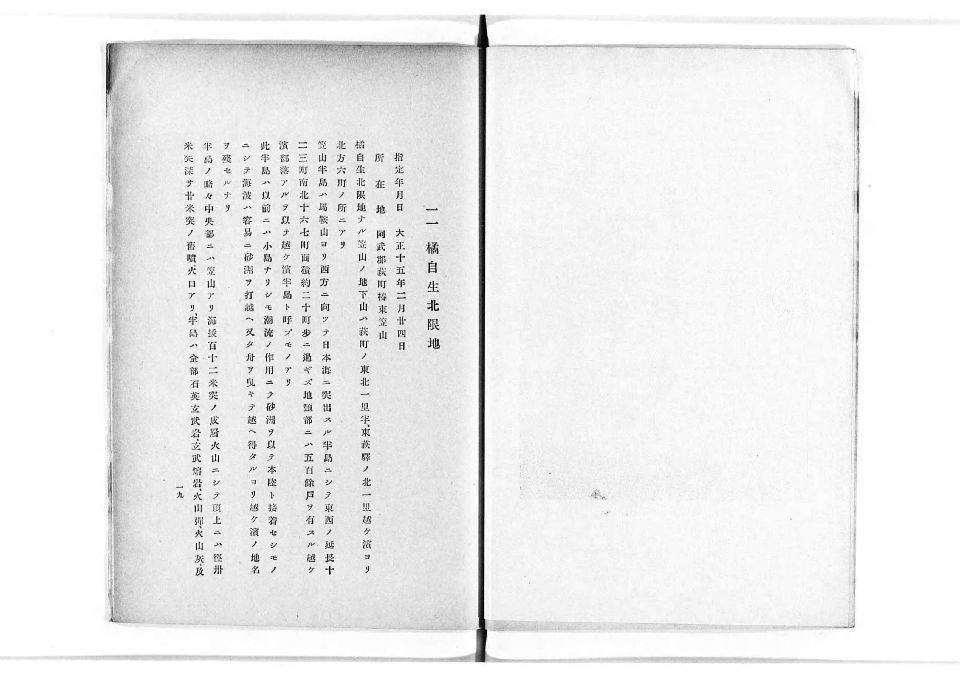 一一 橘自生北限地
指定年月日 大正十五年二月廿四日
所在地 阿武郡萩町椿東笠山
橘自生北限地ナル笠山ノ地下山ハ萩町ノ東北一里半、東萩驛ノ北一里越ケ濱ヨリ
北方六町ノ所ニアリ
笠山半島ハ馬鞍山ヨリ西方ニ向ツテ日本海ニ突出スル半島ニシテ東西ノ延長十
二三町南北十六七町面積約二十町歩ニ過ギズ地頸部ニハ五百餘戸ヲ有スル越ケ
濱部落アルヲ以テ越ケ濱半島ト呼ブモノアリ
此半島ハ以前ニハ小島ナリシモ潮流ノ作用ニテ砂湖ヲ以テ本陸ト接着セシモノ
ニシテ海波ハ容易ニ砂湖ヲ打越ヘ又タ舟ヲ曳キテ越ヘ得タルヨリ越ケ濱ノ地名
ヲ殘セルナリ
半島ノ略々中央部ニハ笠山アリ海拔百十二米突ノ成層火山ニシテ頂上ニハ徑卅
米突深サ廿米突ノ舊噴火口アリ、半島ハ全部石英玄武岩、玄武熔岩、火山彈、火山灰及
一九